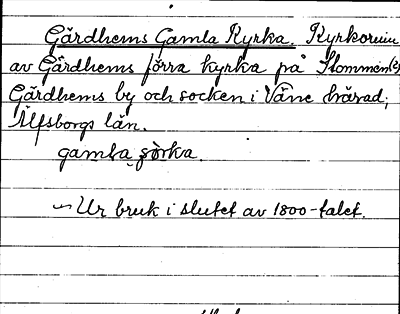 Gärdhems Gamla Kyrka. Kyrkoruin
av Gärdhems förra kyrka på Stommen(s)
Gärdhems by och socken i Väne härad,
Älfsborgs län.
gamla
Ur bruk i slutet av 1800-talet.